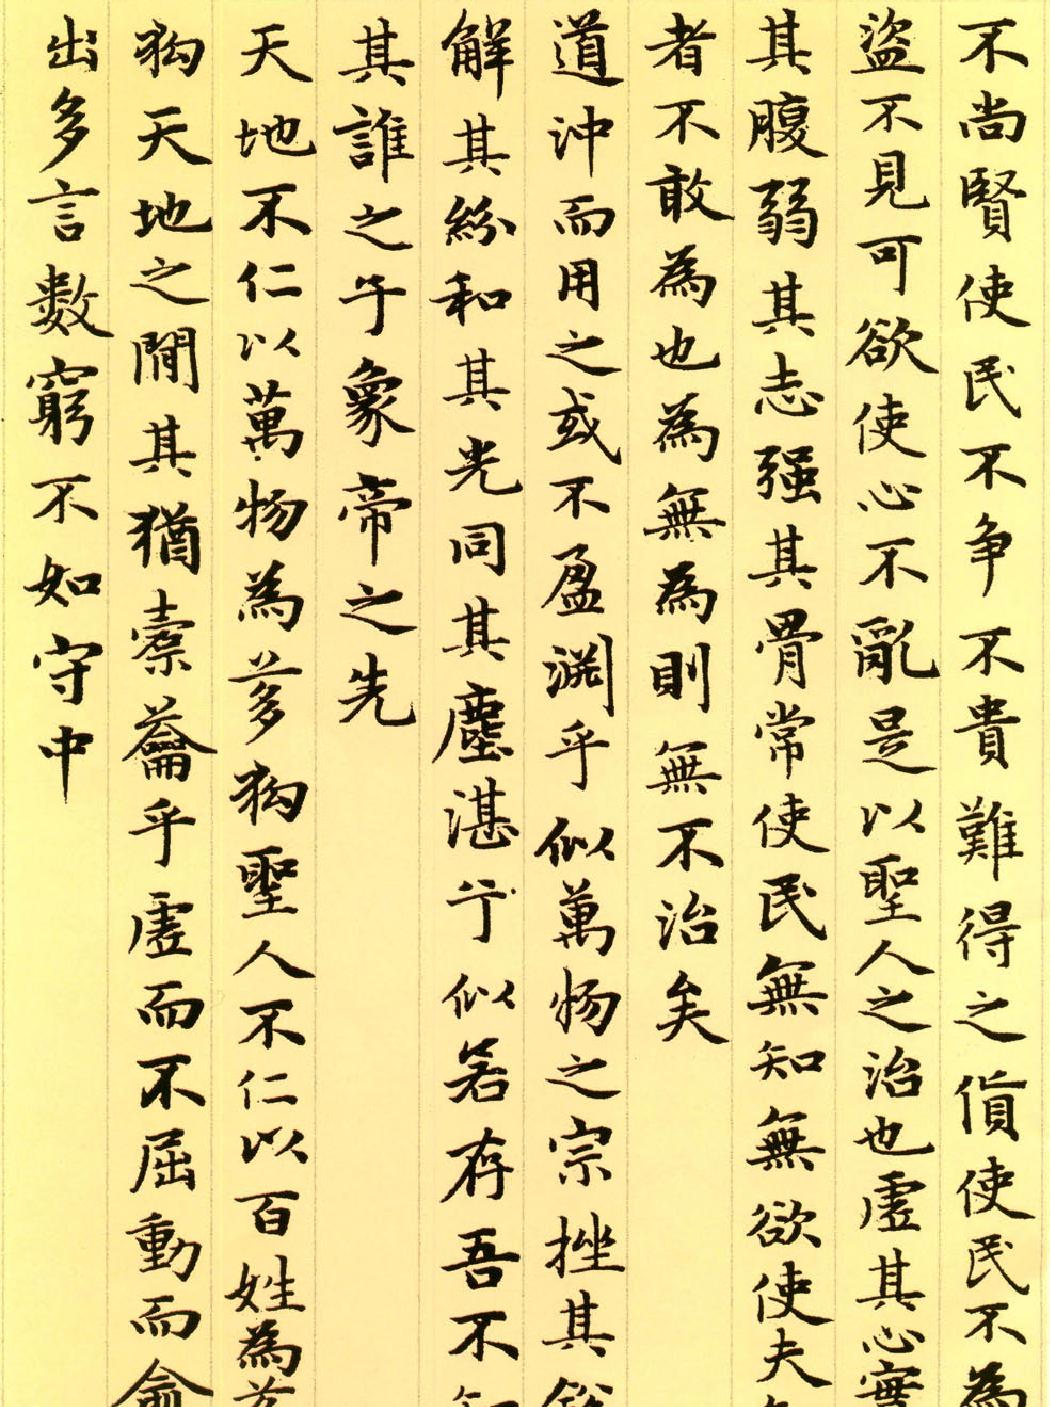 不尚賢使民不争不貴難得之貨使民不為
盜不見可欲使心不亂是以聖人之治也虛其心實
其腹弱其志强其骨常使民無知無欲使夫
者不敢為也為無為則無不治矣
道沖而用之或不盈淵乎似萬物之宗挫其銳
解其紛和其光同其塵湛兮似若存吾不知
其誰之子象帝之先
天地不仁以萬物為芻狗聖人不仁以百姓為芻
狗天地之間其猶橐籥乎虛而不屈動而俞
出多言數窮不如守中